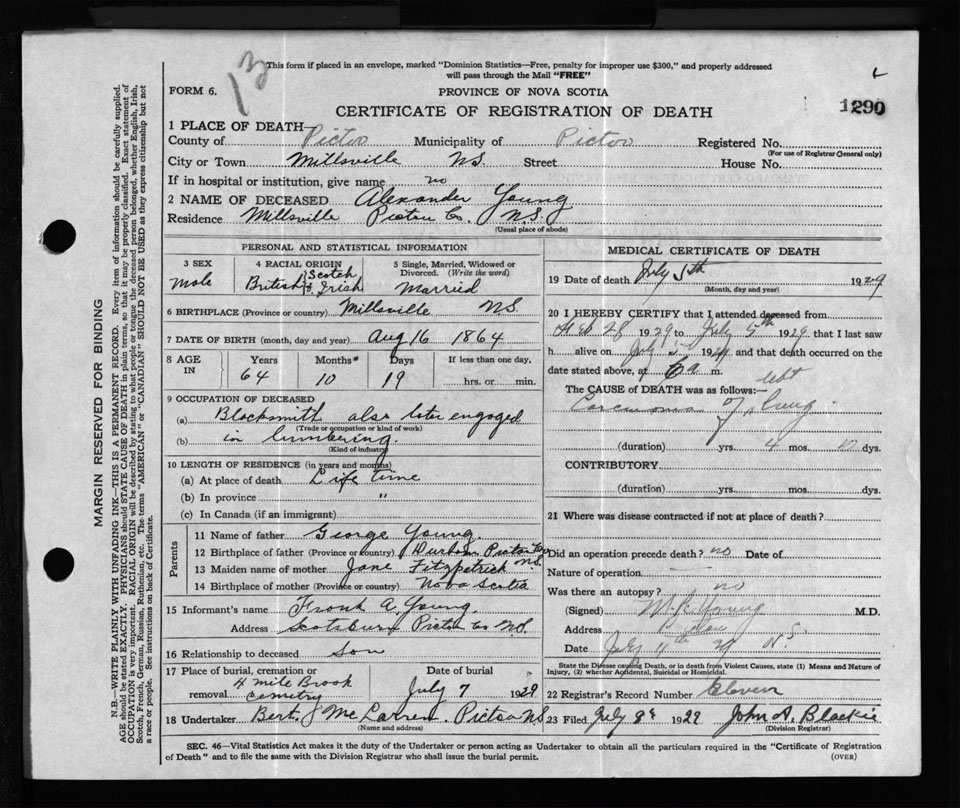 13
This form if placed in an envelope, marked "Dominion Statistics—Free, penalty for improper use $300," and properly addressed
will pass through the Mail "FREE"
FORM 6.
PROVINCE OF NOVA SCOTIA
CERTIFICATE OF REGISTRATION OF DEATH
1290
1 PLACE OF DEATH—
County of Pictou Municipality of Pictou Registered No.
(For use of Registrar General only)
City or Town Millsville N.S. Street House No.
If in hospital or institution, give name no
2 NAME OF DECEASED Alexander Young
Residence Millsville Pictou Co. N.S.
(Usual place of abode)
PERSONAL AND STATISTICAL INFORMATION
3 SEX
Male
4 RACIAL ORIGIN
British Scotch & Irish
5 Single, Married, Widowed or
Divorced. (Write the word)
Married
6 BIRTHPLACE (Province or country) Millsville N.S.
7 DATE OF BIRTH (month, day and year) Aug 16 1864
8 AGE IN
Years Months Days If less than one day,
64 10 19 hrs. or min.
9 OCCUPATION OF DECEASED
(a) Blacksmith also later engaged
(Trade or occupation or kind of work)
(b) in lumbering.
(Kind of industry)
10 LENGTH OF RESIDENCE (in years and months)
(a) At place of death Life time
(b) In province "
(c) In Canada (if an immigrant)
Parents
11 Name of father George Young.
12 Birthplace of father (Province or country) Durham Pictou Co N.S.
13 Maiden name of mother Jane Fitzpatrick
14 Birthplace of mother (Province or country) Nova Scotia
15 Informant's name Frank A. Young.
Address Scotsburn Pictou Co N.S.
16 Relationship to deceased Son
17 Place of burial, cremation or
removal 4 Mile Brook Cemetry
Date of burial
July 7 1929
18 Undertaker Bert J McLarren. Pictou N.S.
(Name and address)
MEDICAL CERTIFICATE OF DEATH
19 Date of death July 5th 1929
(Month, day and year)
20 I HEREBY CERTIFY that I attended deceased from
Feb 28 1929 to July 5th 1929 that I last saw
h alive on July 5 1929 and that death occurred on
date stated above, at 6 a m.
The CAUSE of DEATH was as follows:—
Carcinoma of left lung
(duration) yrs. 4 mos. 10 dys.
CONTRIBUTORY
(duration) yrs. mos. dys.
21 Where was disease contracted if not at place of death?
Did an operation precede death? no Date of
Nature of operation
Was there an autopsy? no
(Signed) Young M.D.
Address Pictou N.S.
Date July 29
State the Disease causing Death, or in death from Violent Causes, state (1) Means and Nature of
Injury, (2) whether Accidental, Suicidal or Homicidal.
22 Registrar's Record Number Eleven
23 Filed July 8 1929 John A. Blackie
(Division Registrar)
SEC. 46—Vital Statistics Act makes it the duty of the Undertaker or person acting as Undertaker to obtain all the particulars required in the "Certificate of Registration
of Death" and to file the same with the Division Registrar who shall issue the burial permit.
(OVER)
MARGIN RESERVED FOR BINDING
N.B.—WRITE PLAINLY WITH UNFADING INK—THIS IS A PERMANENT RECORD. Every item of information should be carefully supplied.
AGE should be stated EXACTLY. PHYSICIANS should STATE CAUSE OF DEATH in plain terms, so that it may be properly classified. Exact statement of
OCCUPATION is very important. RACIAL ORIGIN will be described by stating to what people or tongue the deceased person belonged, whether English, Irish,
Scotch, French, German, Russian, Ruthenian, etc. The terms "AMERICAN" or "CANADIAN" SHOULD NOT BE USED as they express citizenship but not
a race or people. See instructions on back of Certificate.